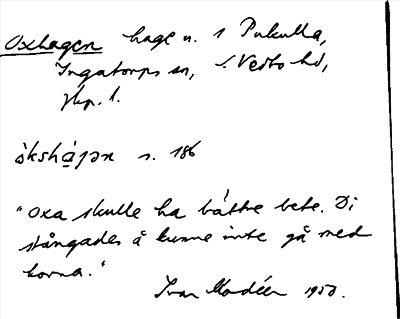 Oxhagen hage n. 1 Pukulla,
Ingatorps sn, S. Vedbo hd,
Jkp. l.
òkshá̱gən s. 186
"Oxa skulle ha bättre bete. Di
stångades å kunne inte gå med
korna."
Ivar Modéer 1950.